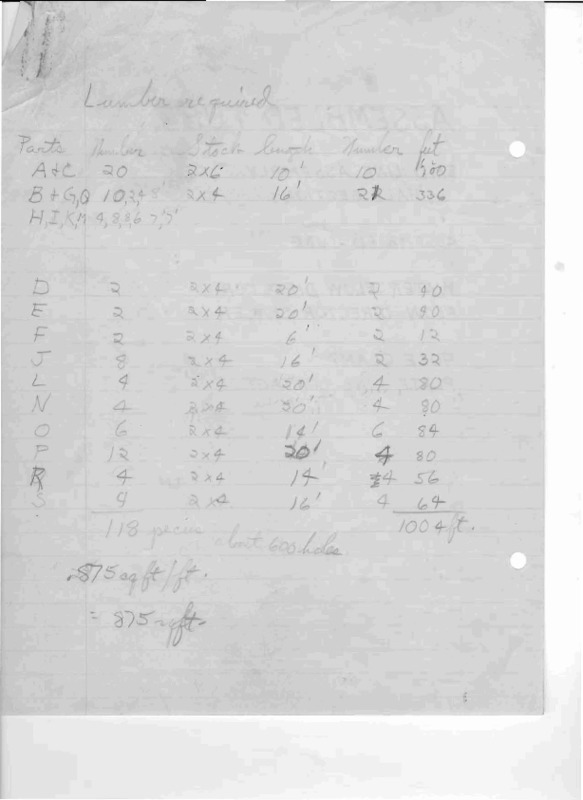 Lumber required
Parts Number Stock length Number feet
A+C 20 2x6 10' 10 100
B+G,Q 10,2,4 2x4 16' 21 336
H,I,K,M 4,8,
D 2 2x4 20' 2 40
E 2 2x4 20' 2 40
F 2 2x4 6' 2 12
J 8 2x4 16' 2 32
L 4 2x4 20' 4 80
N 4 2x4 20' 4 80
O 6 2x4 14' 6 84
P 12 2x4 20' 4 80
R 4 2x4 14' 4 56
S 4 2x4 16' 4 64
118 pieces about 600 holes 1004 ft.
.875 sq ft/ft.
= 875 sqft.